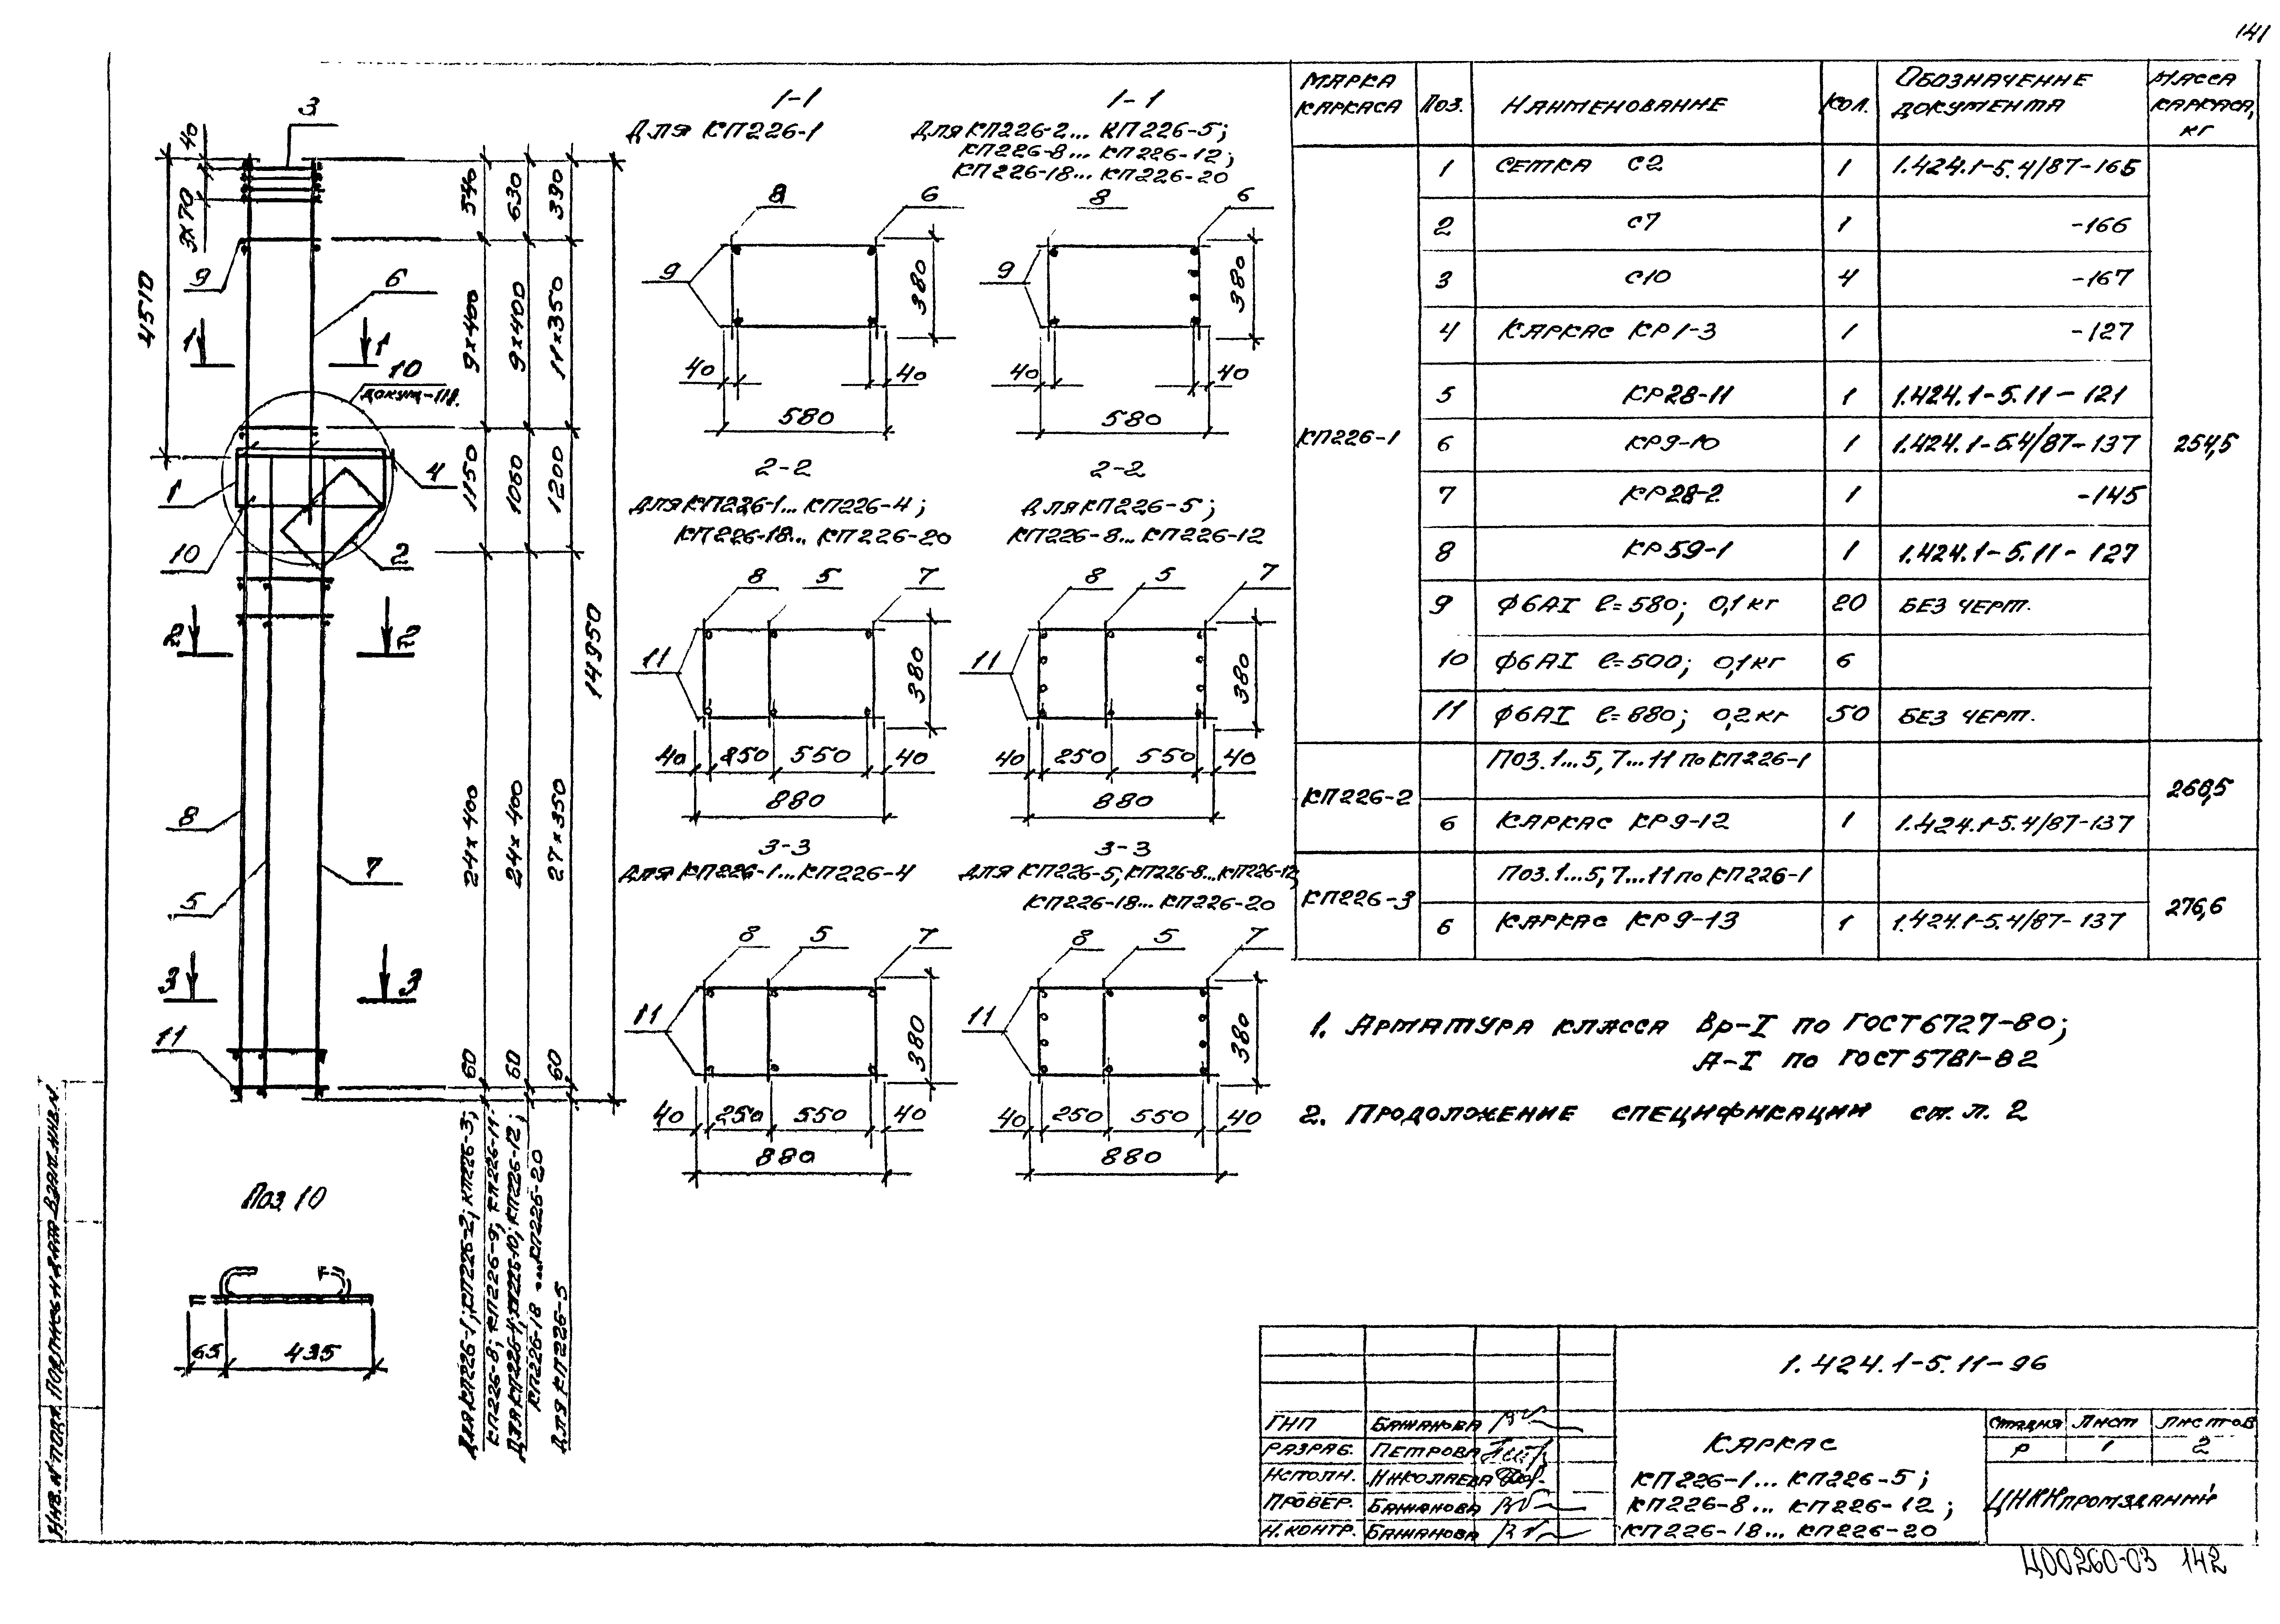 141
3
40
3х70
4510
9
6
1
1
10
докум-118.
1
4
10
2
2
2
8
7
5
3
3
11
540
630
390
9х400
9х400
11х350
1150
1060
1200
14950
24х400
24х400
27х350
60
60
60
Для КП226-1; КП226-2; КП226-3;
Для КП226-5
КП226-18 ... КП226-20
Поз. 10
65
435
1-1
Для КП226-1
8
6
9
380
40
40
580
1-1
Для КП226-2... КП226-5;
КП226-8... КП226-12;
КП226-18... КП226-20
8
6
9
380
40
40
580
2-2
Для КП226-1... КП226-4;
КП226-18... КП226-20
8
5
7
11
380
40
250
550
40
880
2-2
Для КП226-5;
КП226-8... КП226-12
8
5
7
11
380
40
250
550
40
880
3-3
Для КП226-1...КП226-4
8
5
7
11
380
40
250
550
40
880
3-3
Для КП226-5, КП226-8...КП226-12,
КП226-18... КП226-20
8
5
7
11
380
40
250
550
40
880
Марка каркаса Поз. Наименование Кол. Обозначение документа Масса каркаса, кг
КП226-1 254,5
1 Сетка С2 1 1.424.1-5.4/87-165
2 С7 1 -166
3 С10 4 -167
4 Каркас КР1-3 1 -127
5 КР28-11 1 1.424.1-5.11-121
6 КР9-10 1 1.424.1-5.4/87-137
7 КР28-2 1 -145
8 КР59-1 1 1.424.1-5.11-127
9 ф6АI l=580; 0,1кг 20 без черт.
10 ф6АI l=500; 0,1кг 6
11 ф6АI l=880; 0,2кг 50 без черт.
КП226-2 Поз.1...5,7...11 по КП226-1 268,5
6 Каркас КР9-12 1 1.424.1-5.4/87-137
КП226-3 Поз.1...5,7...11 по КП226-1 276,6
6 Каркас КР9-13 1 1.424.1-5.4/87-137
1. Арматура класса Вр-I по ГОСТ 6727-80;
А-I по ГОСТ 5781-82
2. Продолжение спецификации см. л. 2
1.424.1-5.11-96
ГИП Бажанова
Разраб. Петрова
Исполн. Николаева
Провер. Бажанова
Н.контр. Бажанова
Каркас
КП226-1... КП226-5;
КП226-8... КП226-12;
КП226-18... КП226-20
Стадия Лист Листов
Р 1 2
ЦНИИпромзданий
Инв. № подл. Подпись и дата Взам. инв. №
Ц00260-03 142